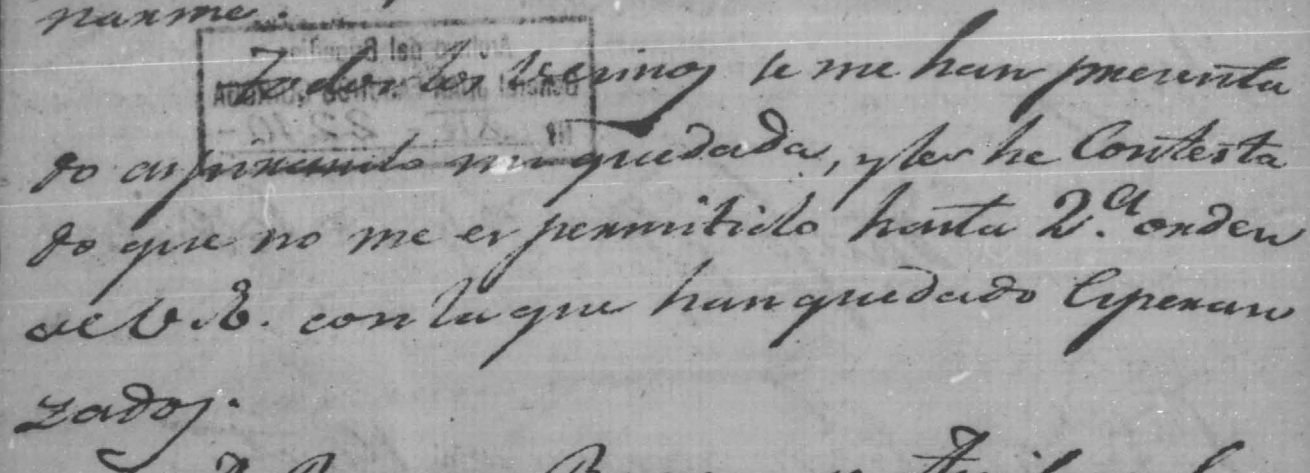 narme.
Todos los vecinos se me han presenta
do aspirando mi quedada, y les he Contesta
do que no me es permitido hasta 2.a orden
de V.E. con la que han quedado Esperan
zados.